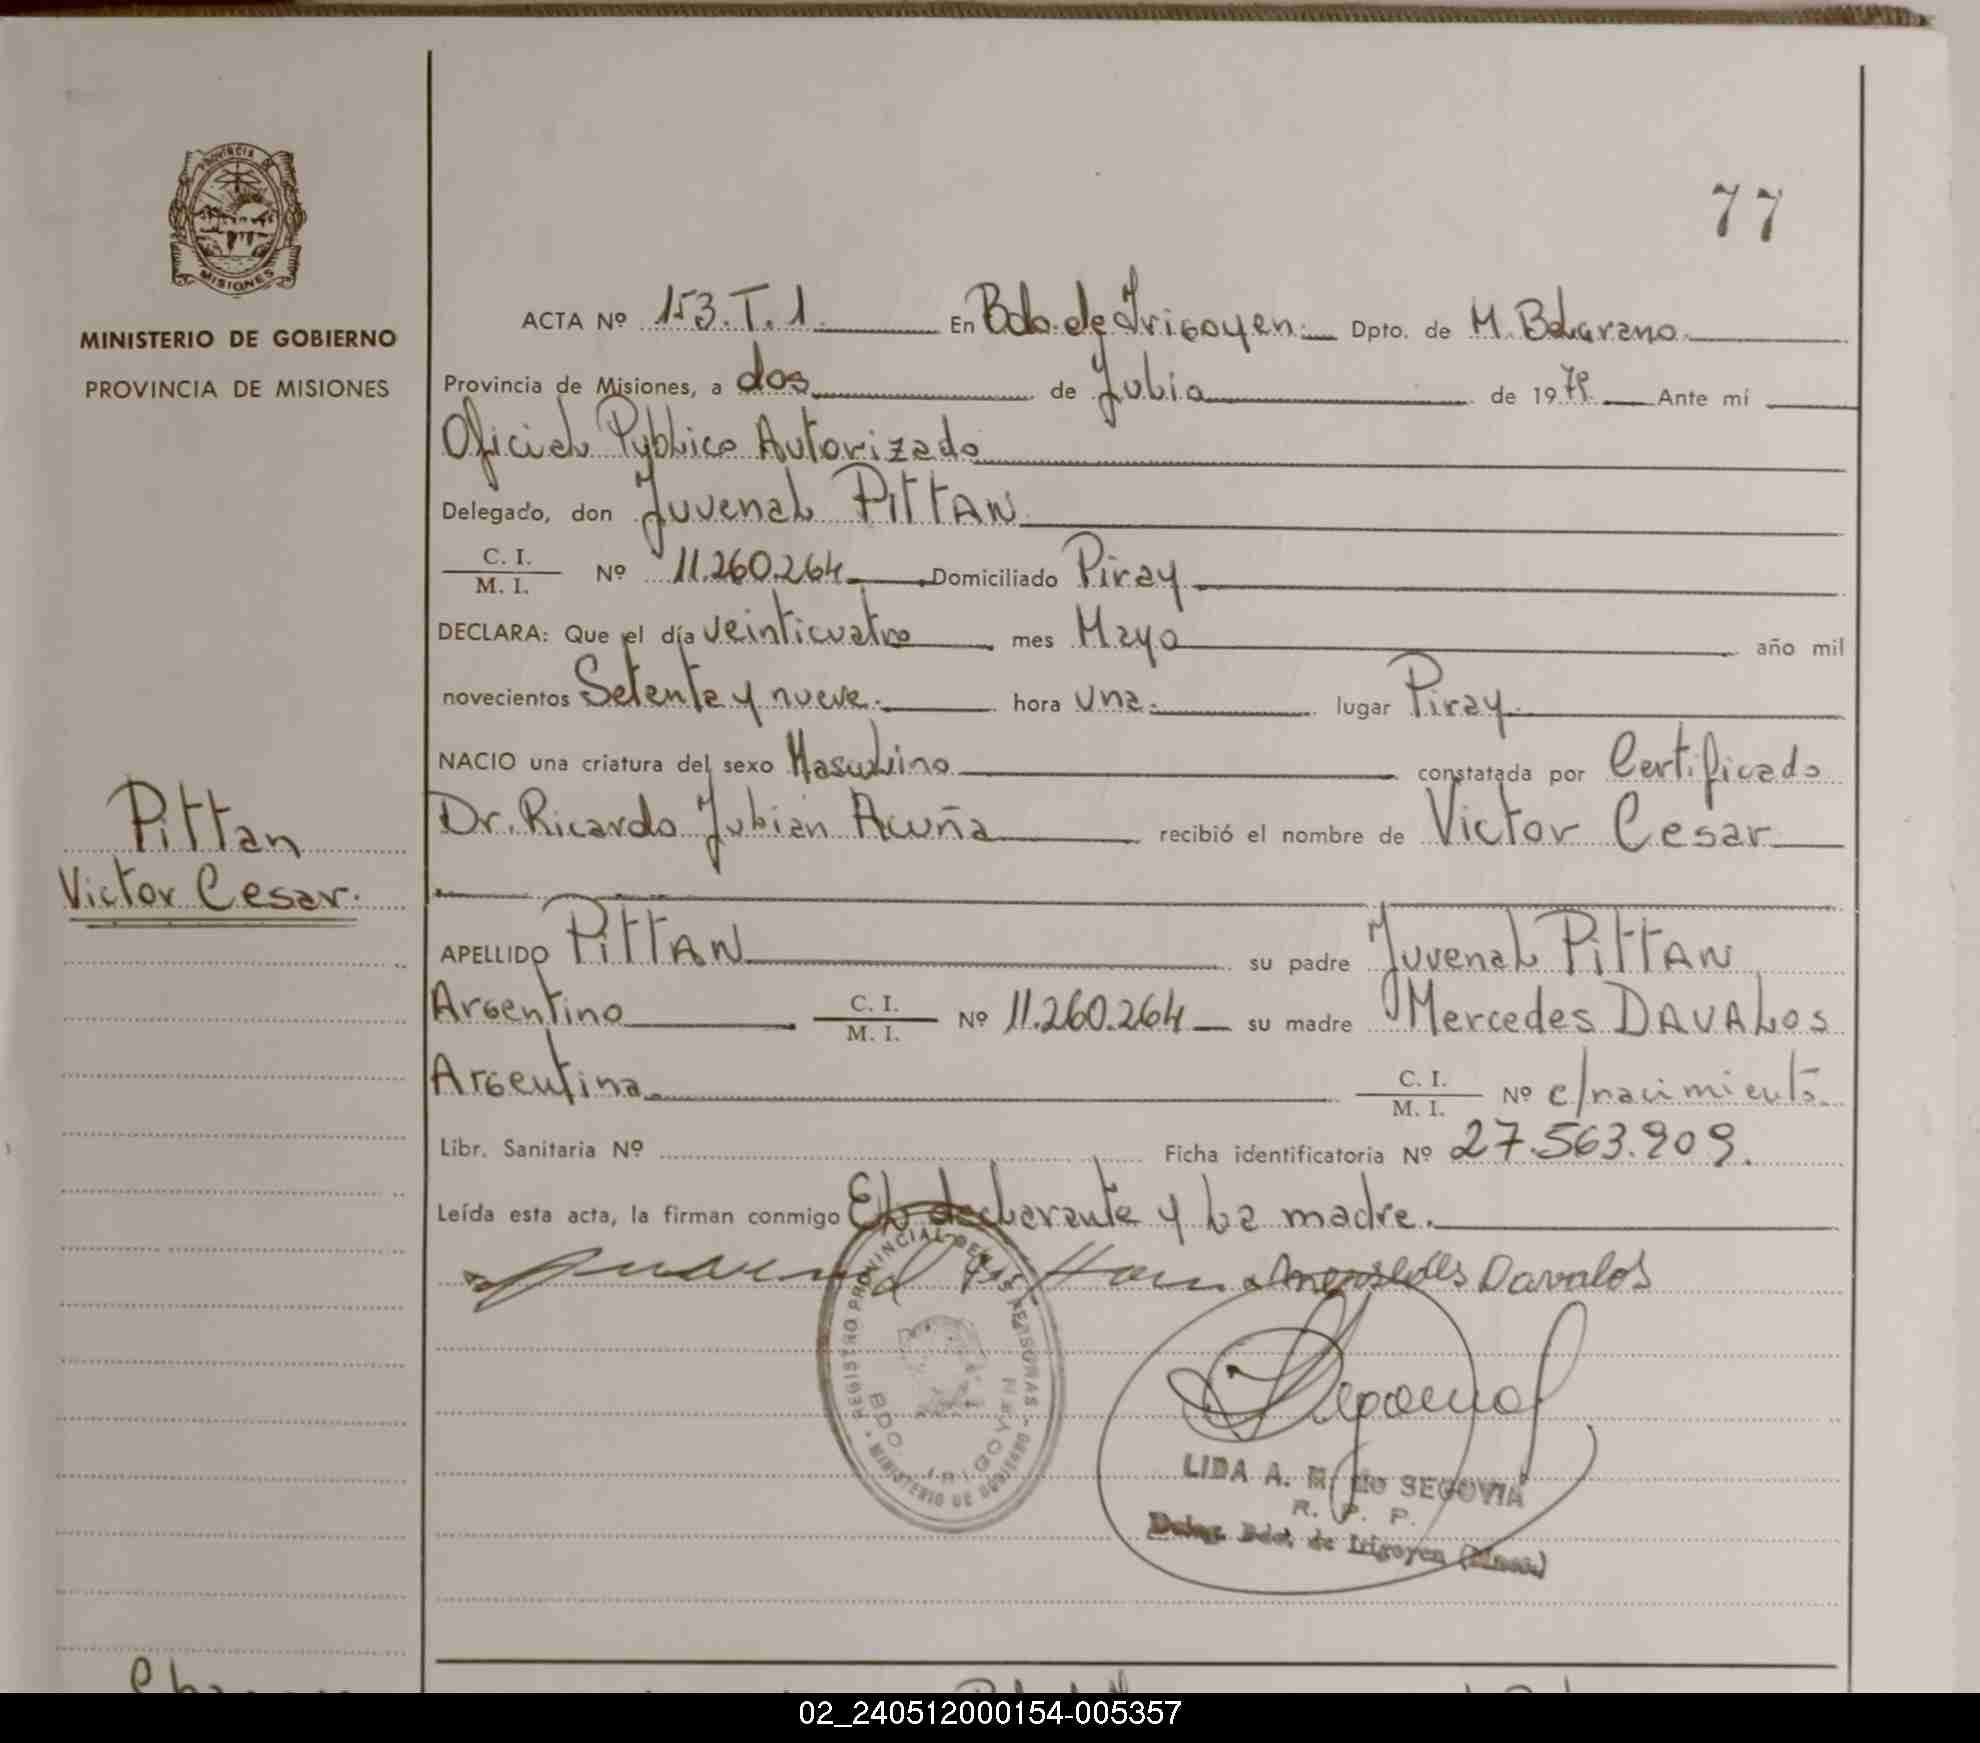 PROVINCIA DE
MISIONES
MINISTERIO DE GOBIERNO
PROVINCIA DE MISIONES
Pittan
Victor Cesar.
77
ACTA Nº 153.T.1. En Bdo. de Irigoyen. Dpto. de M. Belgrano.
Provincia de Misiones, a dos de Julio de 1979. Ante mí
Oficial Publico Autorizado
Delegado, don Juvenal PITTAN
C. I. / M. I. Nº 11.260.264 Domiciliado Piray
DECLARA: Que el día veinticuatro mes Mayo año mil
novecientos Setenta y nueve. hora una. lugar Piray.
NACIO una criatura del sexo Masculino constatada por Certificado
Dr. Ricardo Julian Acuña recibió el nombre de Victor Cesar
APELLIDO PITTAN su padre Juvenal PITTAN
Argentino C. I. / M. I. Nº 11.260.264 su madre Mercedes DAVALOS
Argentina. C. I. / M. I. Nº c/nacimiento.
Libr. Sanitaria Nº Ficha identificatoria Nº 27.563.909.
Leída esta acta, la firman conmigo El declarante y la madre.
Davalos
REGISTRO PROVINCIAL DE LAS PERSONAS
BDO. IRIGOYEN
MINISTERIO DE GOBIERNO
LIDA A. SEGOVIA
R. P. P.
Deleg. Bdo. de Irigoyen (Mnes.)
02_240512000154-005357